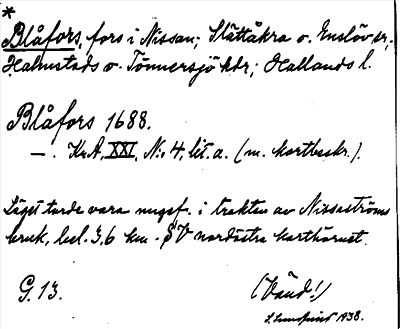 *
Blåfors, fors i Nissan; Slättåkra o. Enslöv sr,
Halmstads o. Tönnersjö hdr; Hallands l.
Blåfors 1688.
— . KrA, XXI, No 4, lit. a. (m. kartbeskr.).
Läget torde vara ungef. i trakten av Nissaströms
bruk, bel. 3,6 km. SV nordöstra karthörnet.
G. 13.
(Vänd!)
S. Lundqvist 1938.